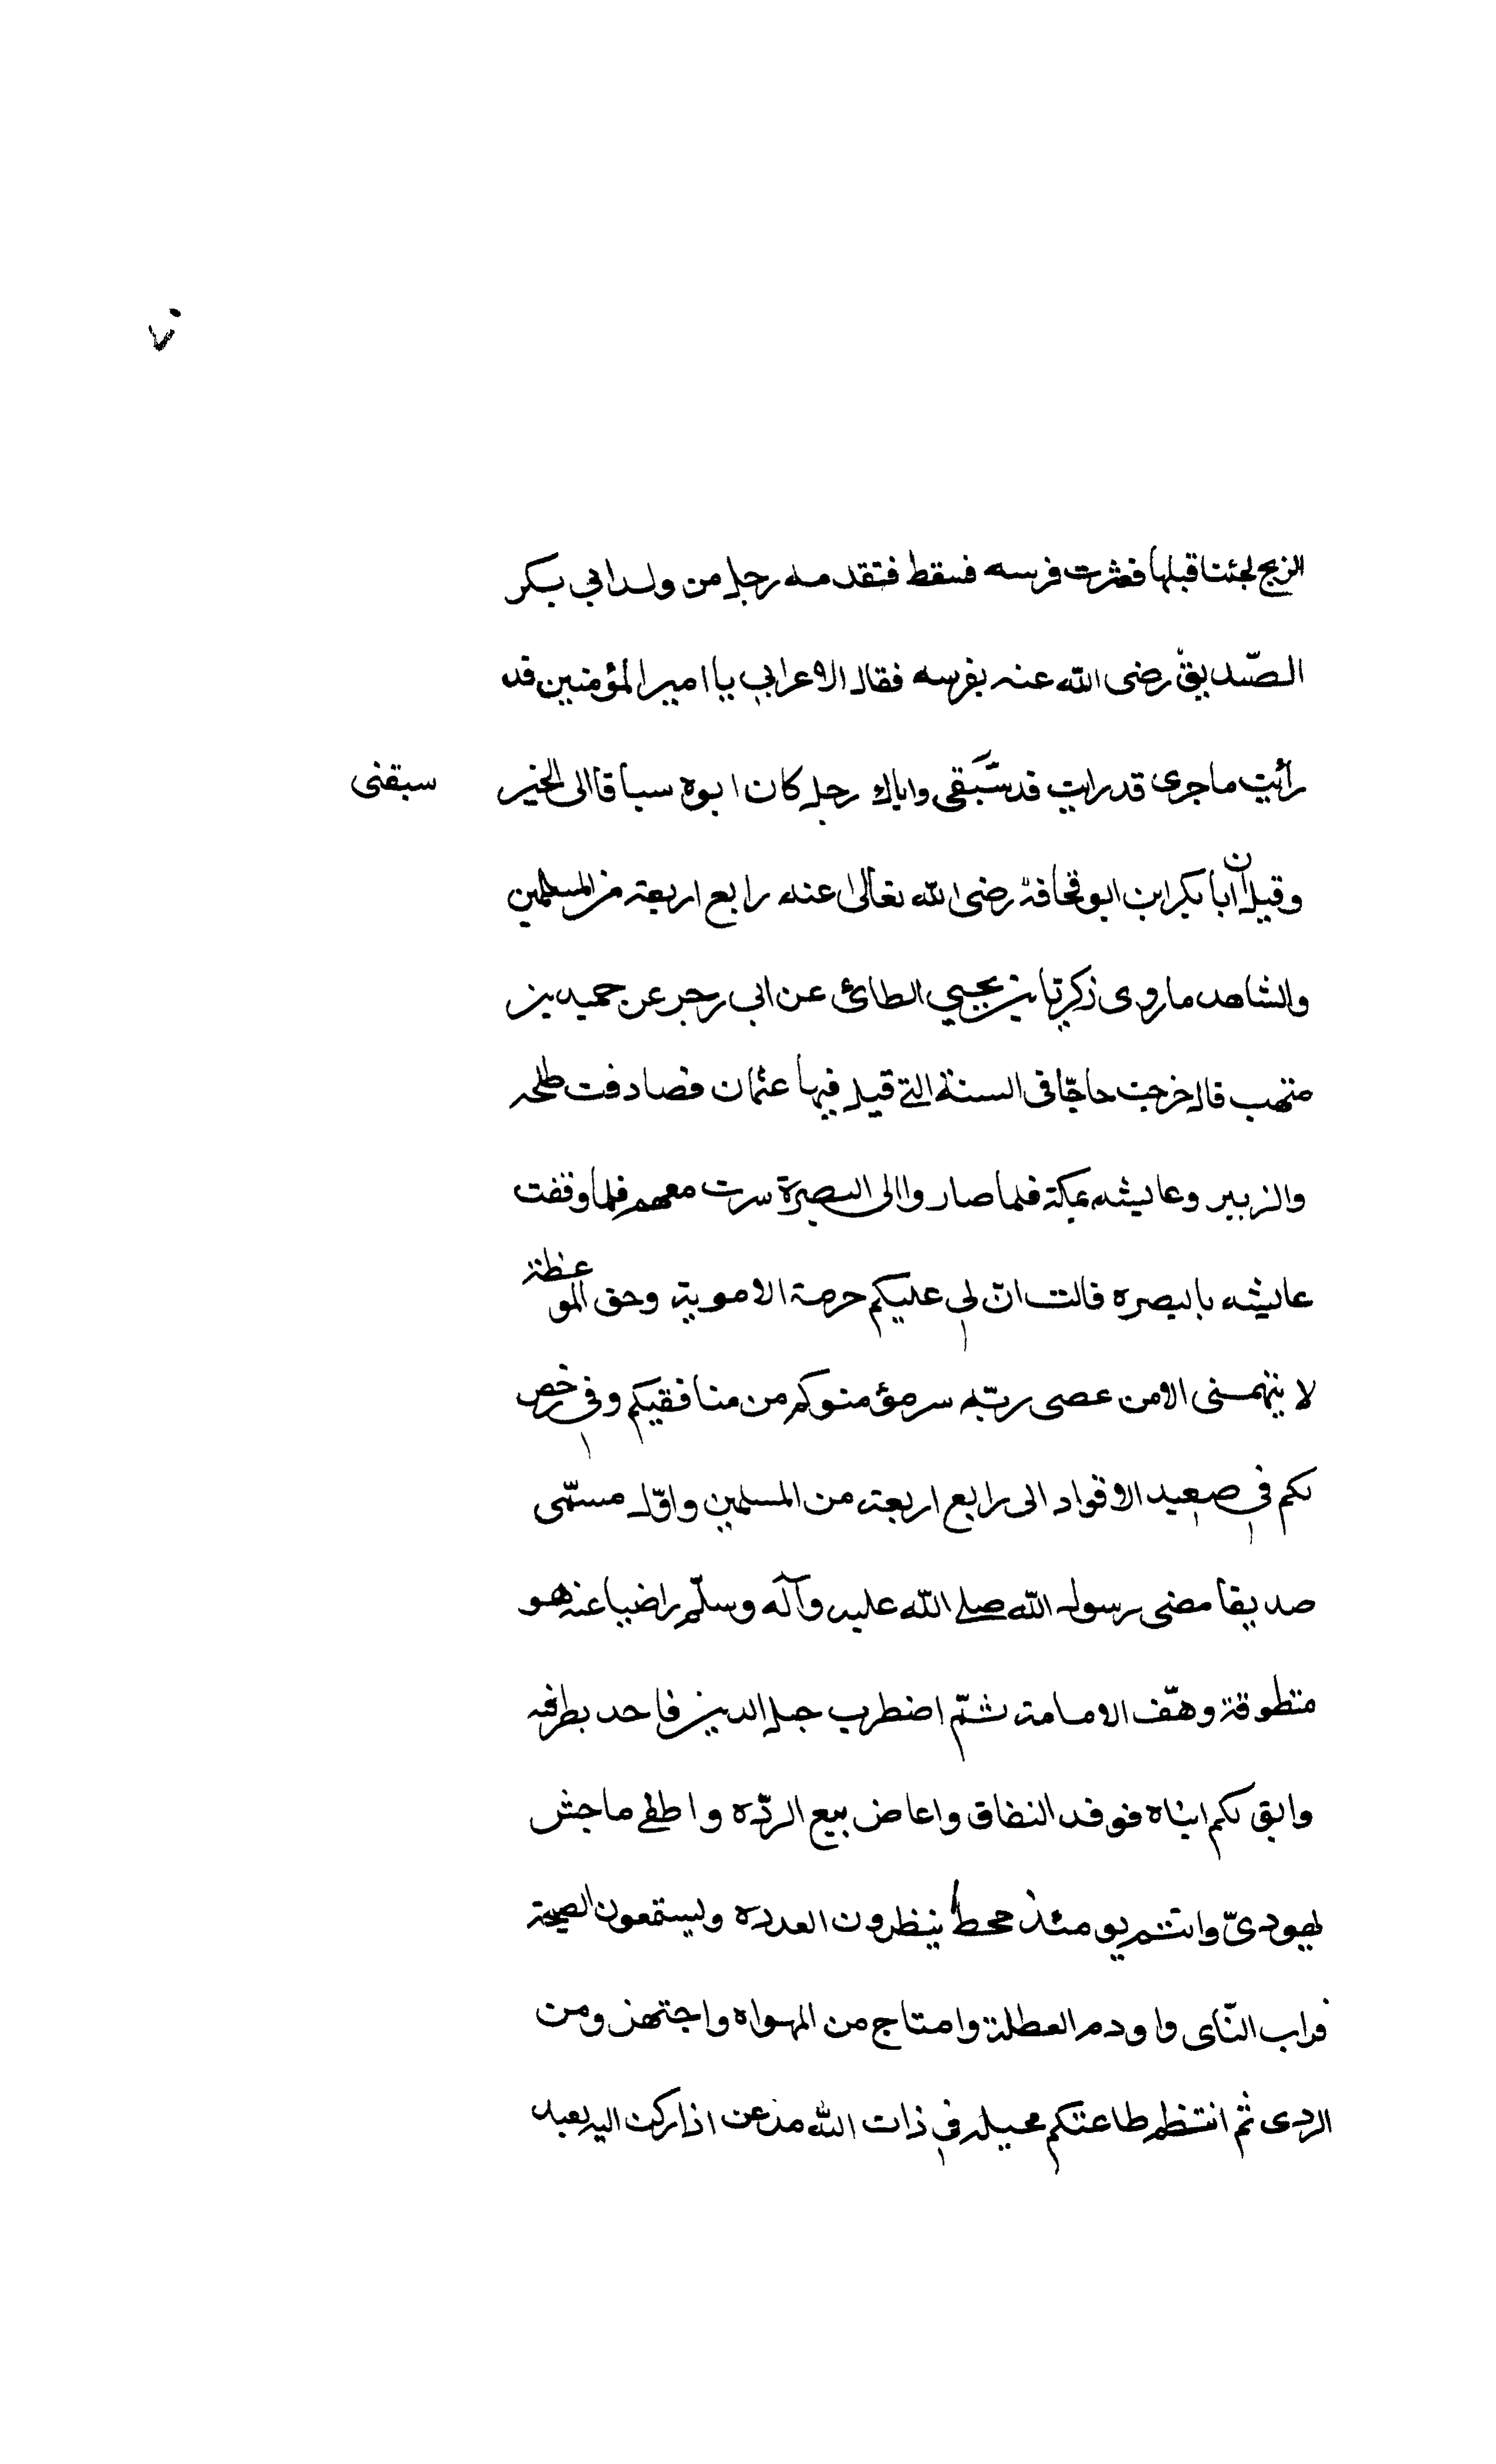 ٧٠
الريح لجئنا قبلها فعثرت فرسه فسقط فتقدمه رجل من ولد ابي بكر
الصّديق رضى الله عنه بفرسه فقال الاعرابي يا امير المؤمنين قد
رأيت ما جرى قد رايت قد سبقى واياك رجل كان ابوه سباقا الى الخير
سبقنى
وقيل ان ابا بكر ابن ابو قحافة رضى الله تعالى عنه رابع اربعة من المسلمين
والشاهد ما روى زكريا بن يحيي الطائ عن ابى رجر عن حميد بن
منهب قال خرجت حاجّا فى السنة التي قيل فيها عثمان فصادفت طلحه
والزبير وعايشه بمكة فلما صاروا الى البصرة سرت معهم فلما وقفت
عايشه بالبصره قالت انّ لى عليكم حرمة الاموية وحق الموعظة
لا يتهمنى الا من عصى ربّه سر مؤمنوكم من منافقيكم وفي رخص
لكم في صعيد الاقواد الى رابع اربعة من المسلمين واوّل مسمّى
صديقا مضى رسول الله صلى الله عليه وآله وسلّم راضيا عنه هو
متطوقة وهّف الامامة ثمّ اضطرب حبل الدين فاحد بطرفه
وابق لكم اثناه فوفد النفاق واعاض بيع الردّه واطفى ما حش
يهودىّ وانتم يومئذ محط ينظرون العدده ويستمعون الصيحة
فراب الثّاى واودم العطلة وامتاج من المهواه واجتهز ومن
الردى ثم انتظم طاعتكم محيله في ذات الله مذعن اذا ركن اليه بعيد